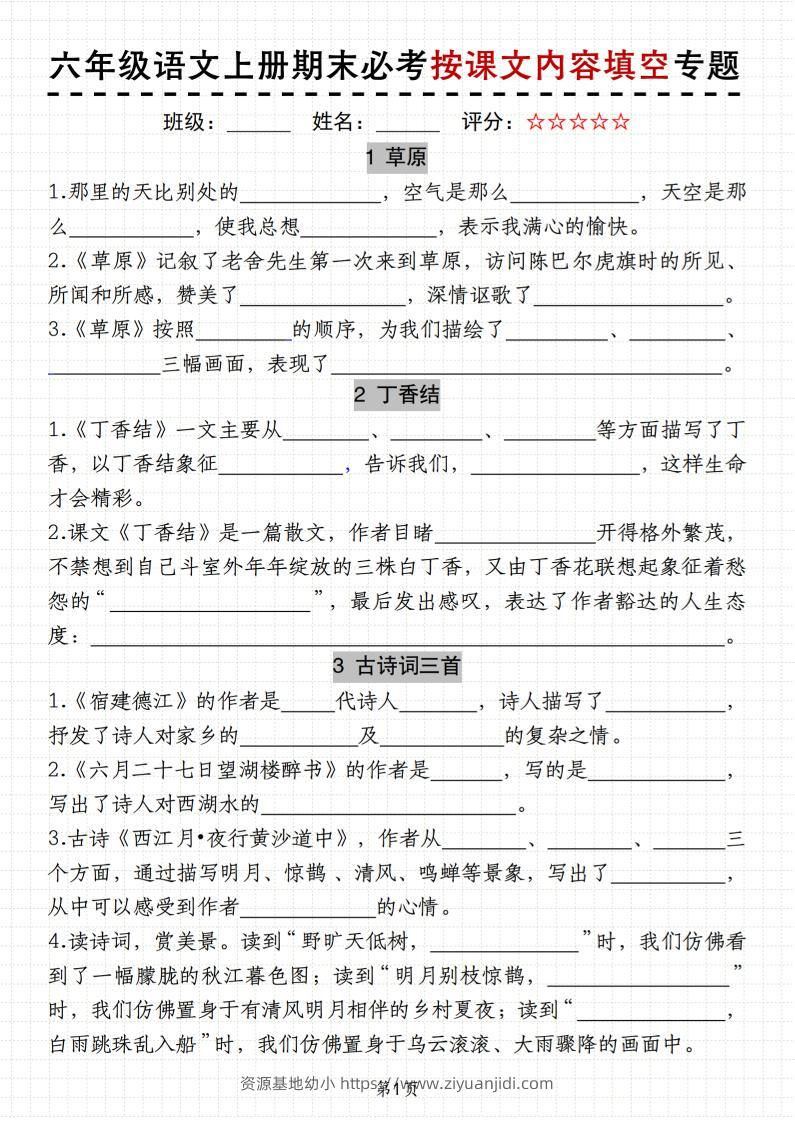 六年级语文上册期末必考按课文内容填空专题
班级：______ 姓名：______ 评分：☆☆☆☆☆
1 草原
1.那里的天比别处的____________，空气是那么____________，天空是那
么____________，使我总想____________，表示我满心的愉快。
2.《草原》记叙了老舍先生第一次来到草原，访问陈巴尔虎旗时的所见、
所闻和所感，赞美了______________，深情讴歌了________________。
3.《草原》按照________的顺序，为我们描绘了________、________、
__________三幅画面，表现了________________________________。
2 丁香结
1.《丁香结》一文主要从_______、_______、_______等方面描写了丁
香，以丁香结象征__________，告诉我们，______________，这样生命
才会精彩。
2.课文《丁香结》是一篇散文，作者目睹______________开得格外繁茂，
不禁想到自己斗室外年年绽放的三株白丁香，又由丁香花联想起象征着愁
怨的“________________”，最后发出感叹，表达了作者豁达的人生态
度：____________________________________________________。
3 古诗词三首
1.《宿建德江》的作者是____代诗人______，诗人描写了__________，
抒发了诗人对家乡的__________及__________的复杂之情。
2.《六月二十七日望湖楼醉书》的作者是______，写的是___________，
写出了诗人对西湖水的____________________。
3.古诗《西江月•夜行黄沙道中》，作者从_______、_______、______三
个方面，通过描写明月、惊鹊 、清风、鸣蝉等景象，写出了_________，
从中可以感受到作者___________的心情。
4.读诗词，赏美景。读到“野旷天低树，____________”时，我们仿佛看
到了一幅朦胧的秋江暮色图；读到“明月别枝惊鹊，_______________”
时，我们仿佛置身于有清风明月相伴的乡村夏夜；读到“____________，
白雨跳珠乱入船”时，我们仿佛置身于乌云滚滚、大雨骤降的画面中。
资源基地幼小 https://www.ziyuanjidi.com
第1页